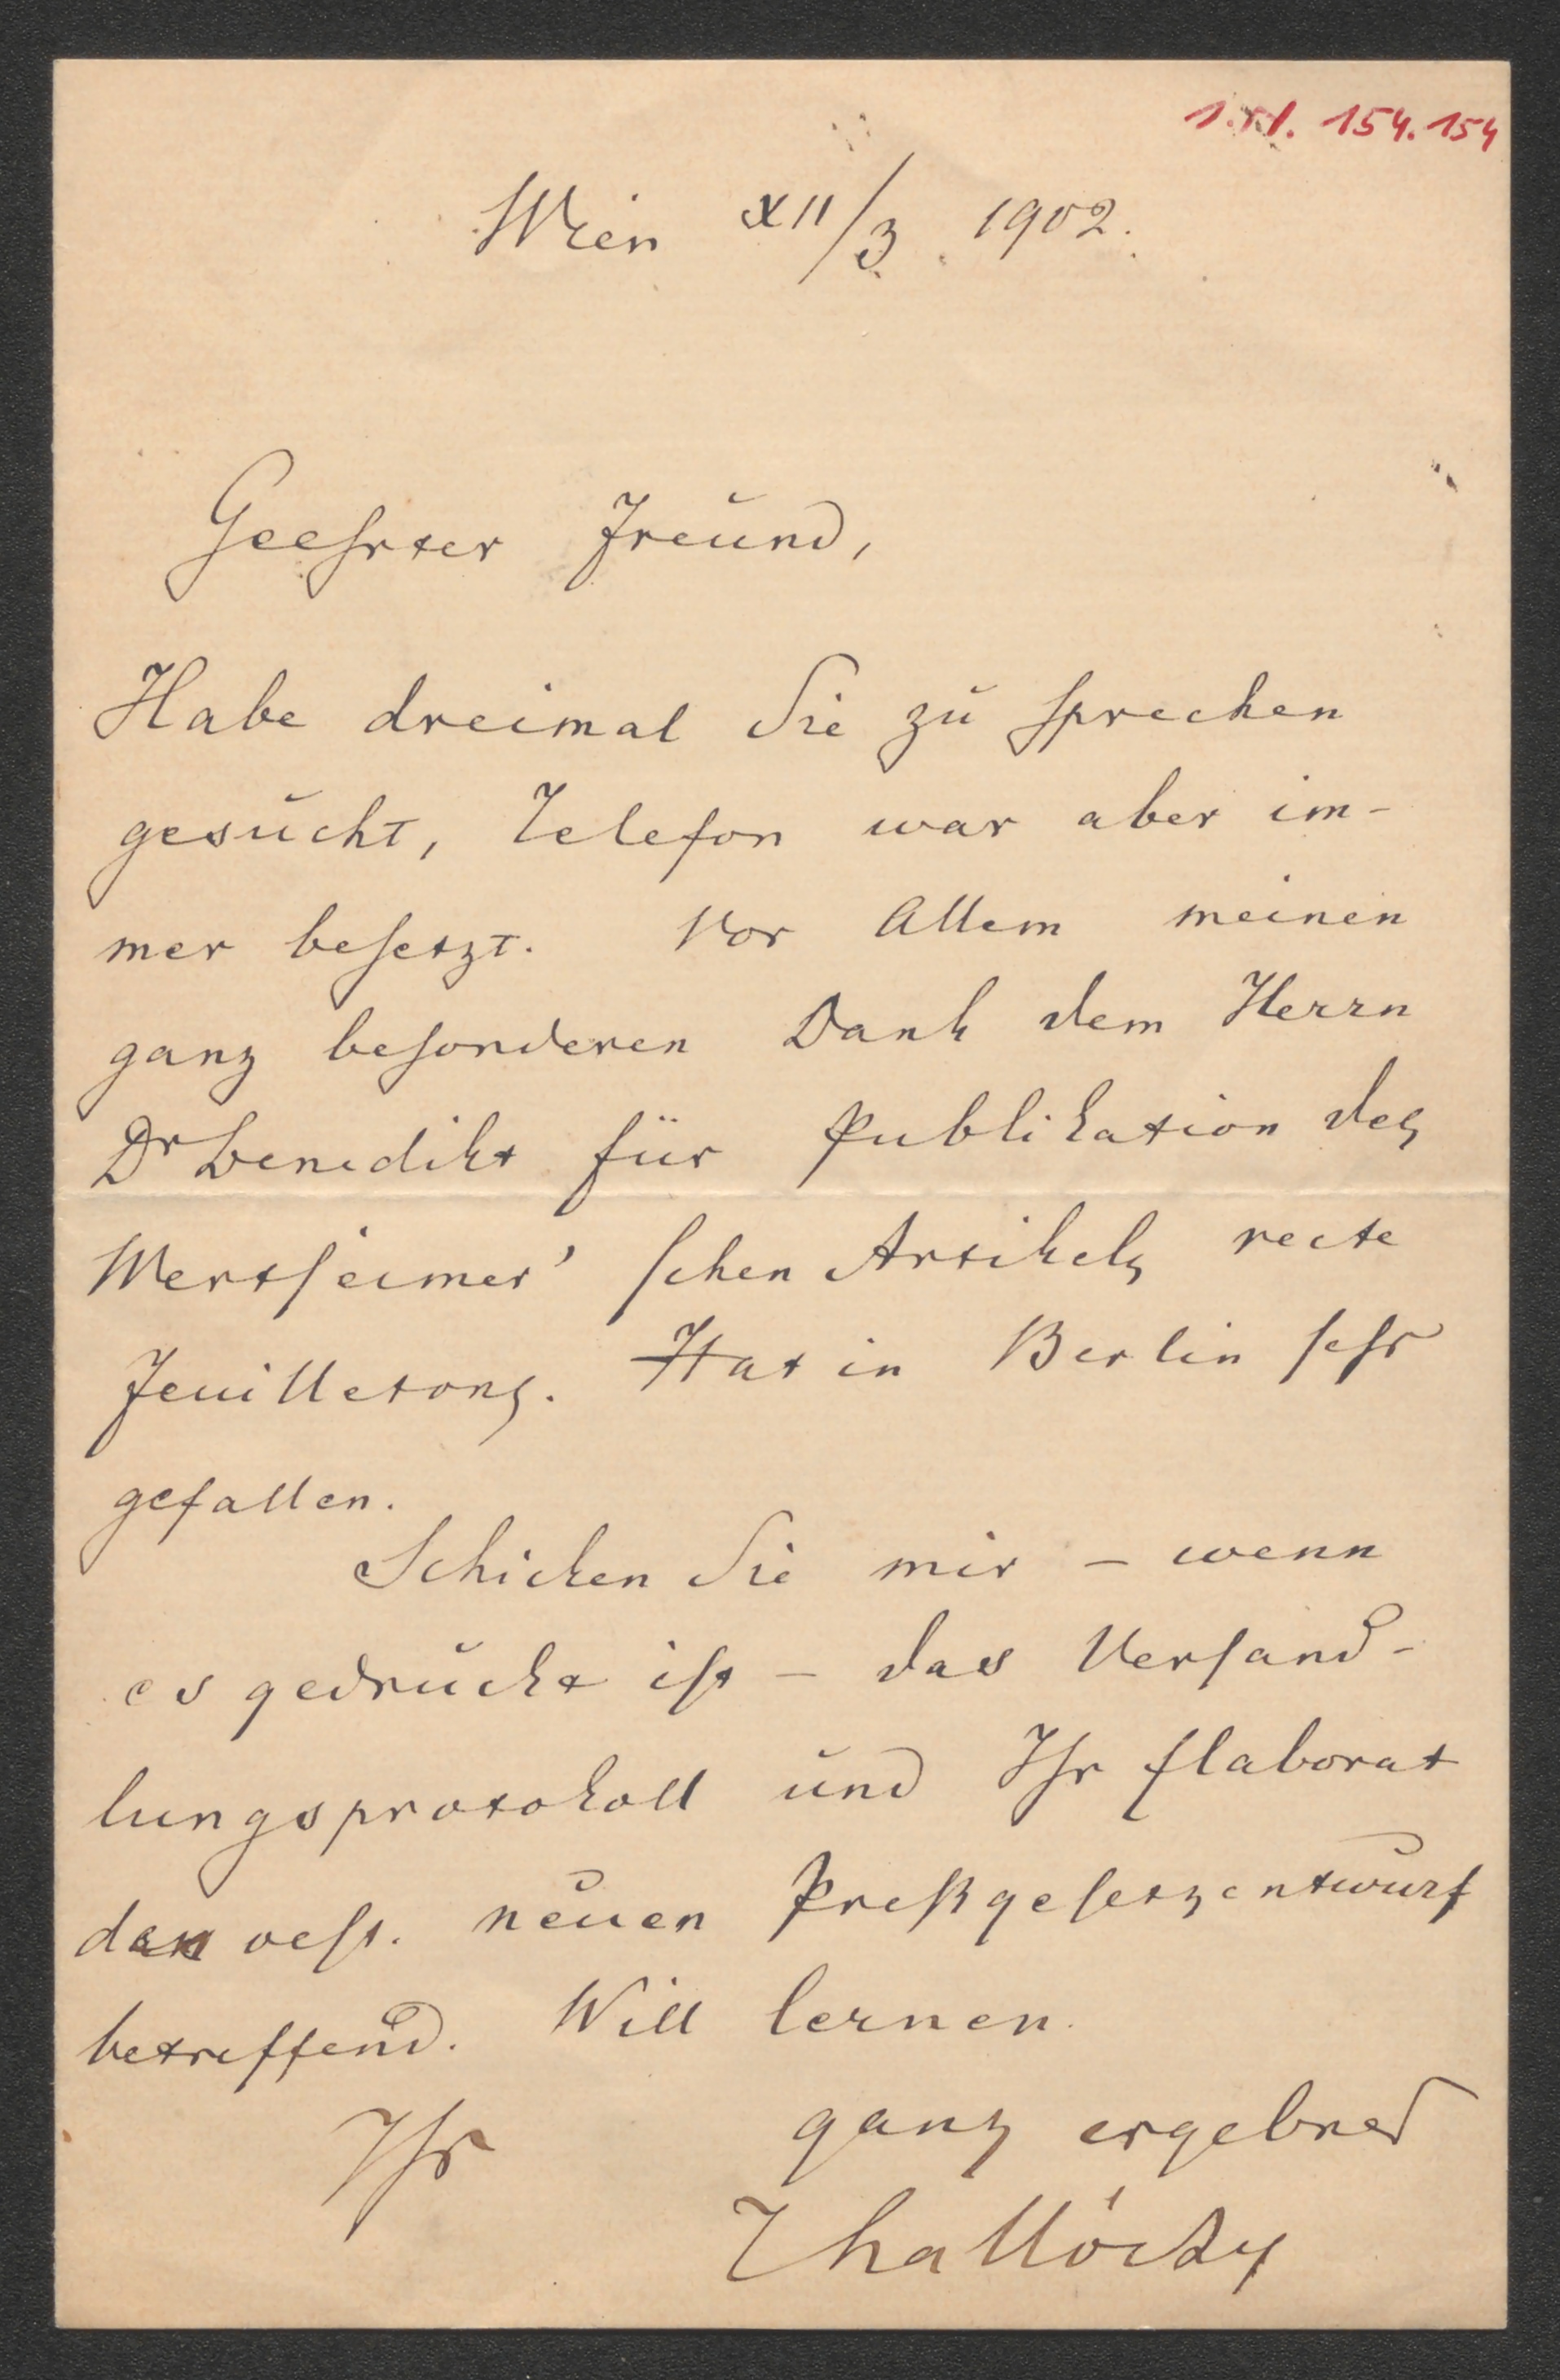 154.154
Wien XII/3 1902.
Geehrter Freund,
Habe dreimal Sie zu sprechen
gesucht, Telefon war aber im-
mer besetzt. Vor Allem meinen
ganz besonderen Dank dem Herrn
Dr Benedikt für Publikation des
Wertheimer'schen Artikels recte
Feuilletons. Hat in Berlin sehr
gefallen.
Schicken Sie mir – wenn
es gedruckt ist – das Verhand-
lungsprotokoll und Ihr Elaborat
den oest. neuen Preßgesetzentwurf
betreffend. Will lernen.
Ihr ganz ergebner
Thallóczy